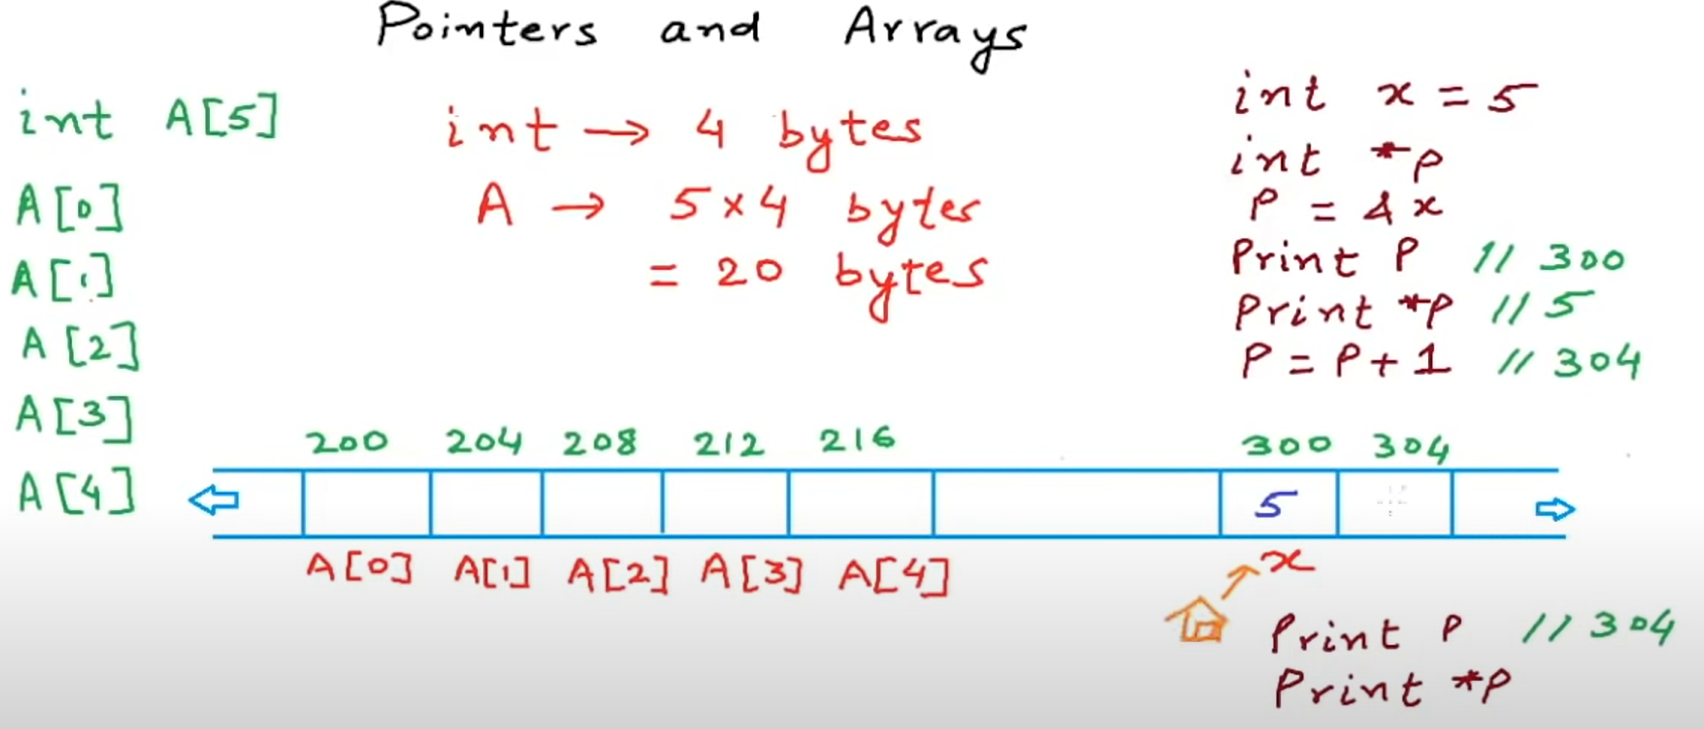 Pointers and Arrays
int A[5]
A[0]
A[1]
A[2]
A[3]
A[4]
int → 4 bytes
A → 5 x 4 bytes
= 20 bytes
int x = 5
int *p
P = &x
Print P // 300
Print *p // 5
P = P + 1 // 304
200 204 208 212 216 300 304
5
A[0] A[1] A[2] A[3] A[4] x
Print P // 304
Print *p